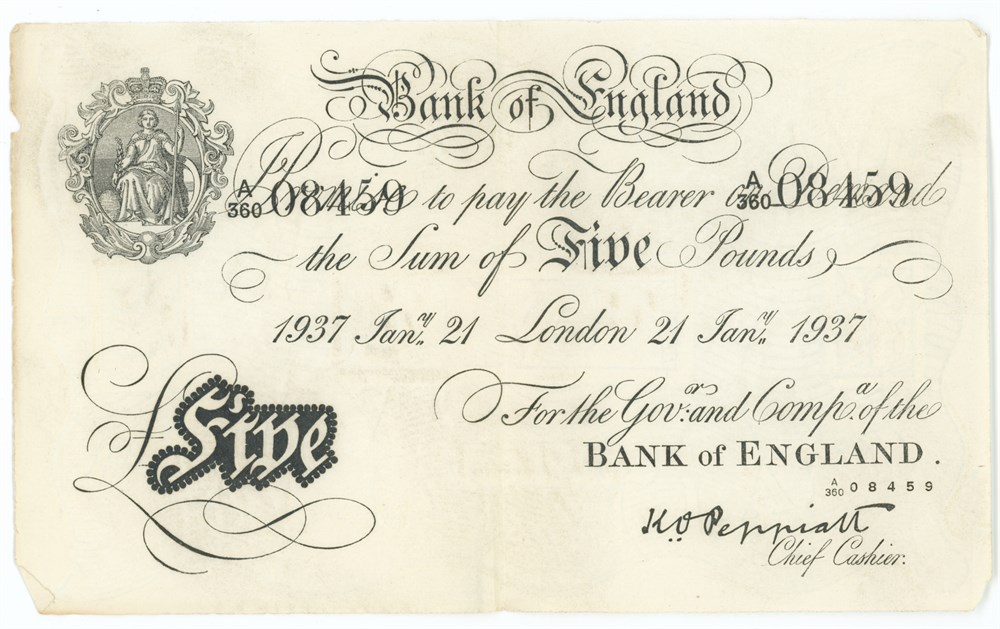 Bank of England
A/360 08459 I Promise to pay the Bearer on Demand A/360 08459
the Sum of Five Pounds
1937 Jan.y 21 London 21 Jan.y 1937
£ Five
For the Gov.r and Comp.a of the
BANK of ENGLAND.
A/360 08459
K.O. Peppiatt
Chief Cashier.